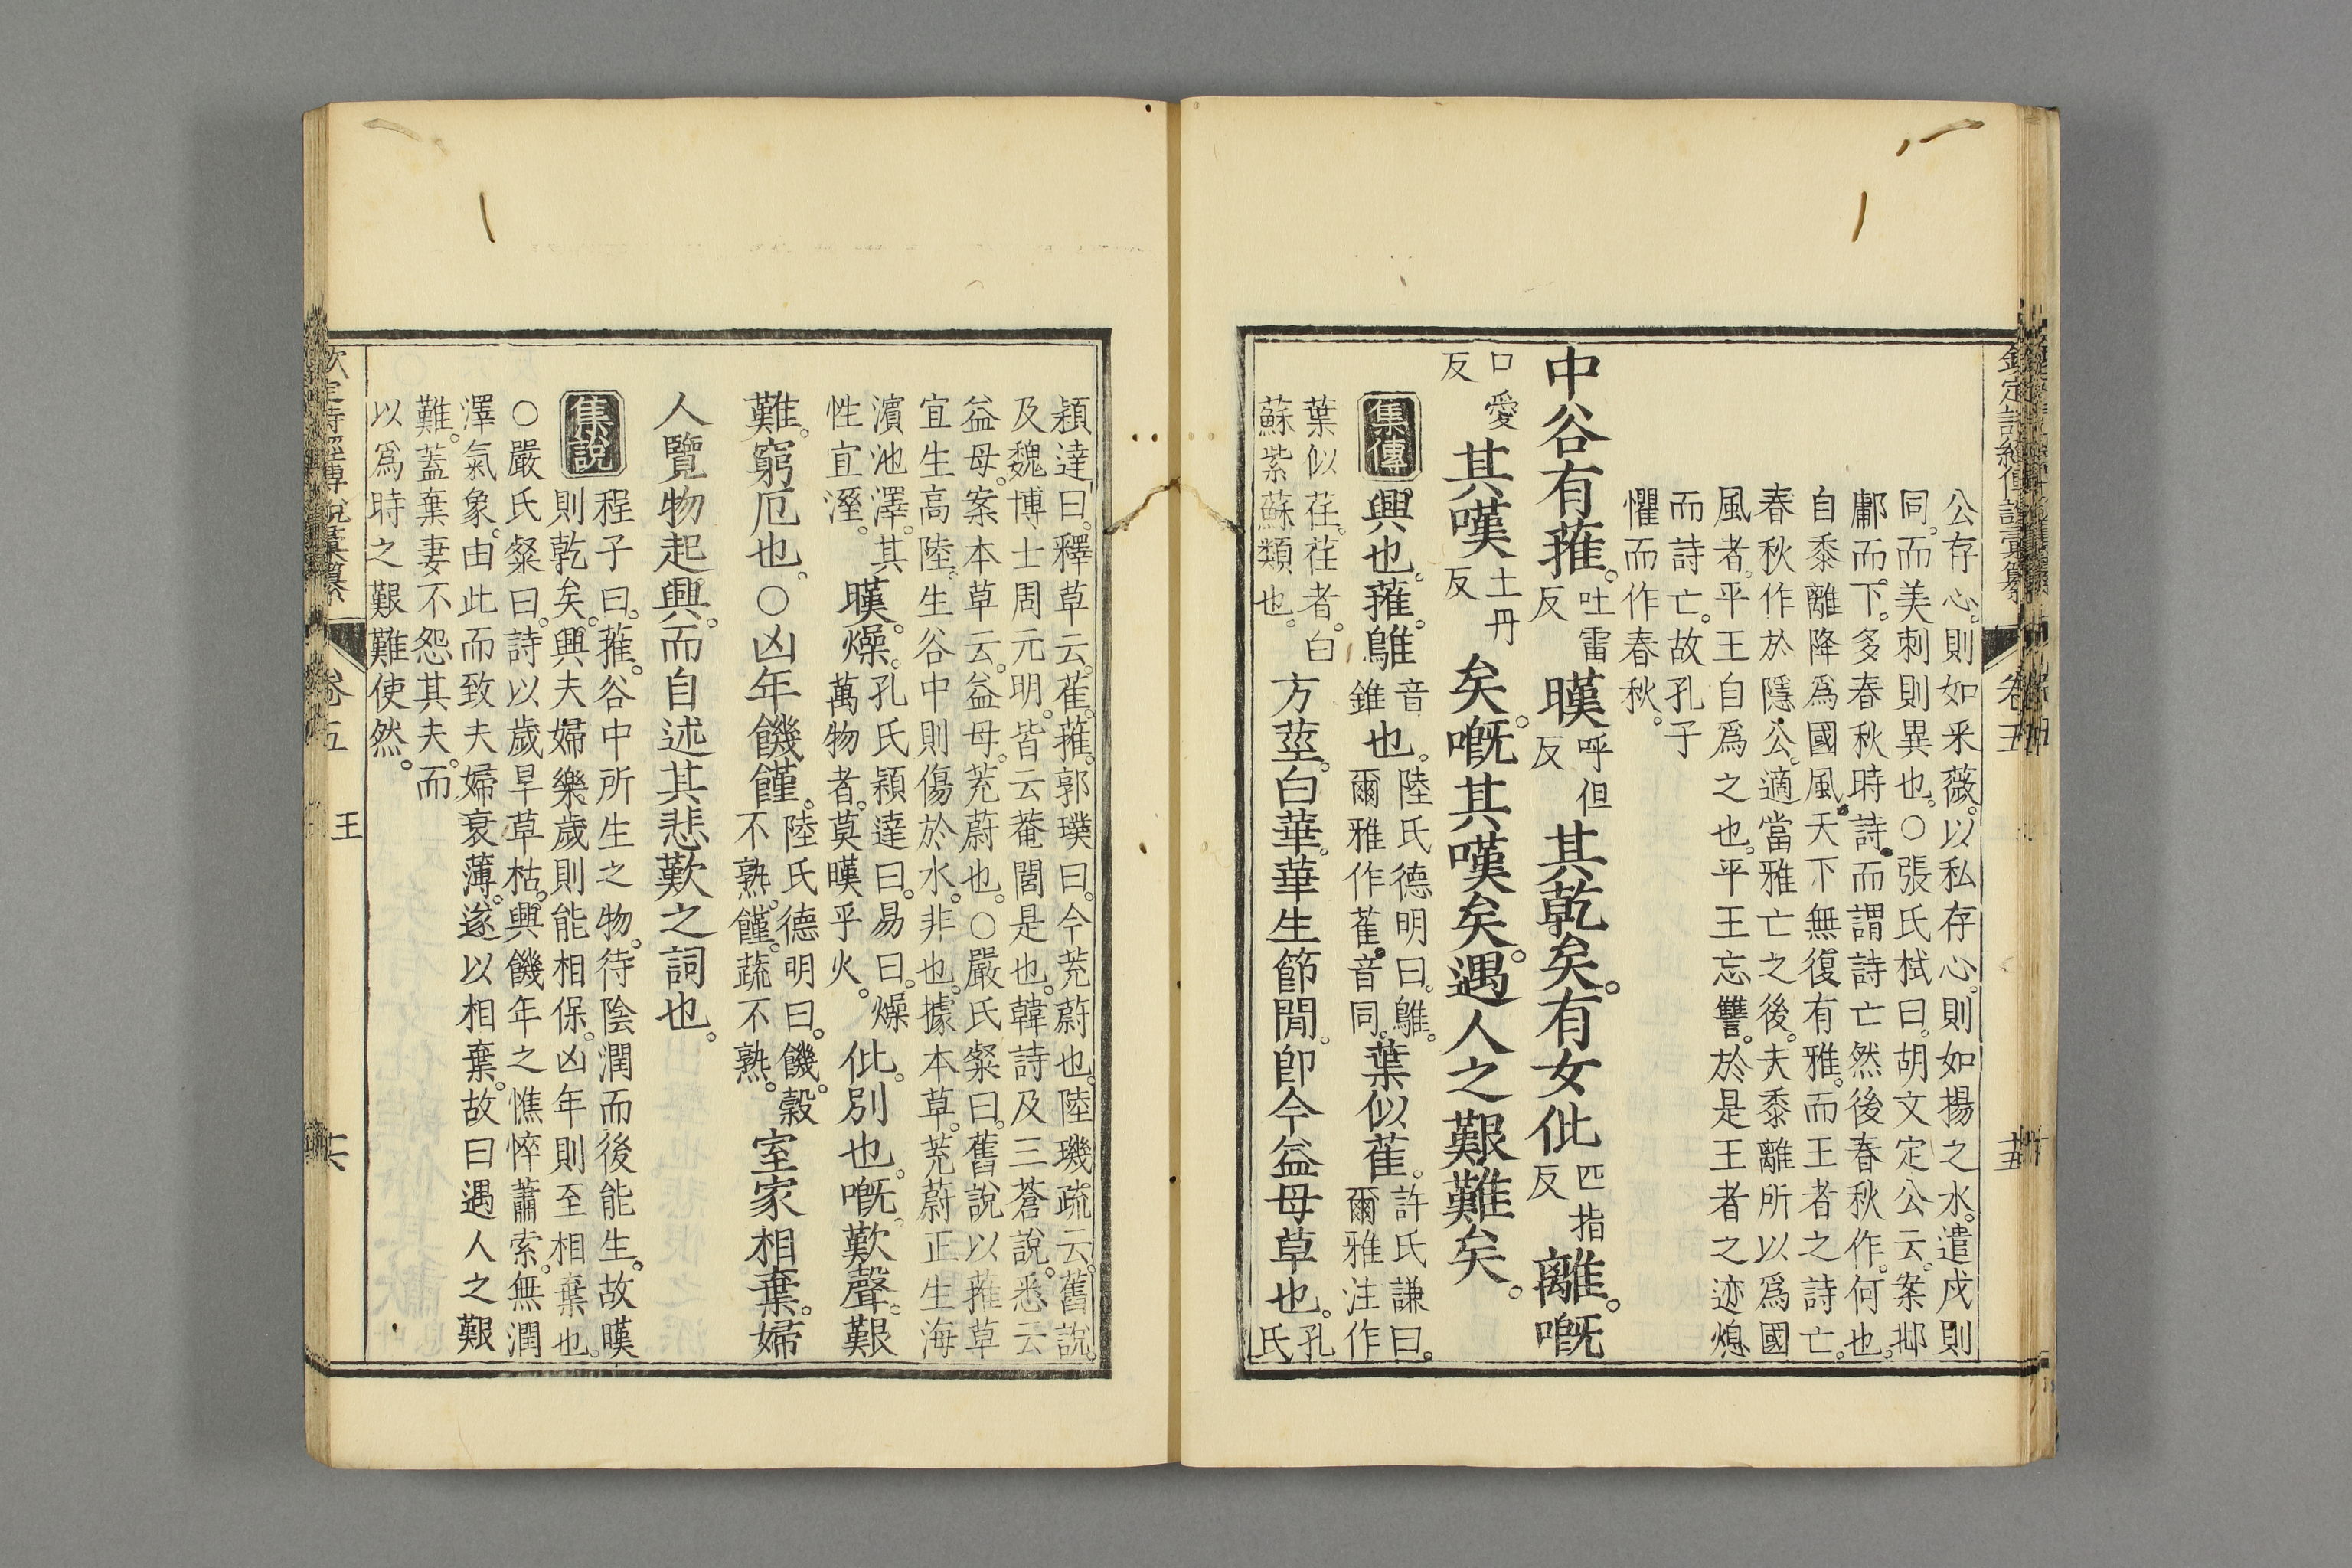 公存心。則如采薇。以私存心。則如揚之水。遣戍則
同。而美刺則異也。○張氏栻曰。胡文定公云。案邶
鄘而下。多春秋時詩。而謂詩亡然後春秋作。何也。
自黍離降爲國風。天下無復有雅。而王者之詩亡。
春秋作於隱公。適當雅亡之後。夫黍離所以爲國
風者。平王自爲之也。平王忘讐。於是王者之迹熄
而詩亡。故孔子
懼而作春秋。
中谷有蓷。吐雷反暵呼但反其乾矣。有女仳匹指反離。嘅
口愛反其嘆土丹反矣。嘅其嘆矣。遇人之艱難矣。
集傳 興也。蓷。鵻音錐也。陸氏德明曰。鵻。爾雅作萑。音同。葉似萑。許氏謙曰。爾雅注作
葉似荏。荏者。白蘇紫蘇類也。方莖。白華。華生節閒。卽今益母草也。孔氏
穎達曰。釋草云。萑。蓷。郭璞曰。今茺蔚也。陸璣疏云。舊說。
及魏博士周元明。皆云菴䕡是也。韓詩及三蒼說。悉云
益母。案本草云。益母。茺蔚也。○嚴氏粲曰。舊說以蓷草
宜生高陸。生谷中則傷於水。非也。據本草。茺蔚正生海
濱池澤。其性宜溼。暵。燥。孔氏穎達曰。易曰。燥萬物者。莫暵乎火。仳。別也。嘅。歎聲。艱
難。窮厄也。○凶年饑饉。陸氏德明曰。饑。穀不熟。饉。蔬不熟。室家相棄。婦
人覽物起興。而自述其悲歎之詞也。
集說 程子曰。蓷。谷中所生之物。待陰潤而後能生。故暵
則乾矣。興夫婦樂歲則能相保。凶年則至相棄也。
○嚴氏粲曰。詩以歲旱草枯。興饑年之憔悴蕭索。無潤
澤氣象。由此而致夫婦衰薄。遂以相棄。故曰遇人之艱
難。蓋棄妻不怨其夫。而
以爲時之艱難使然。
卷五 王